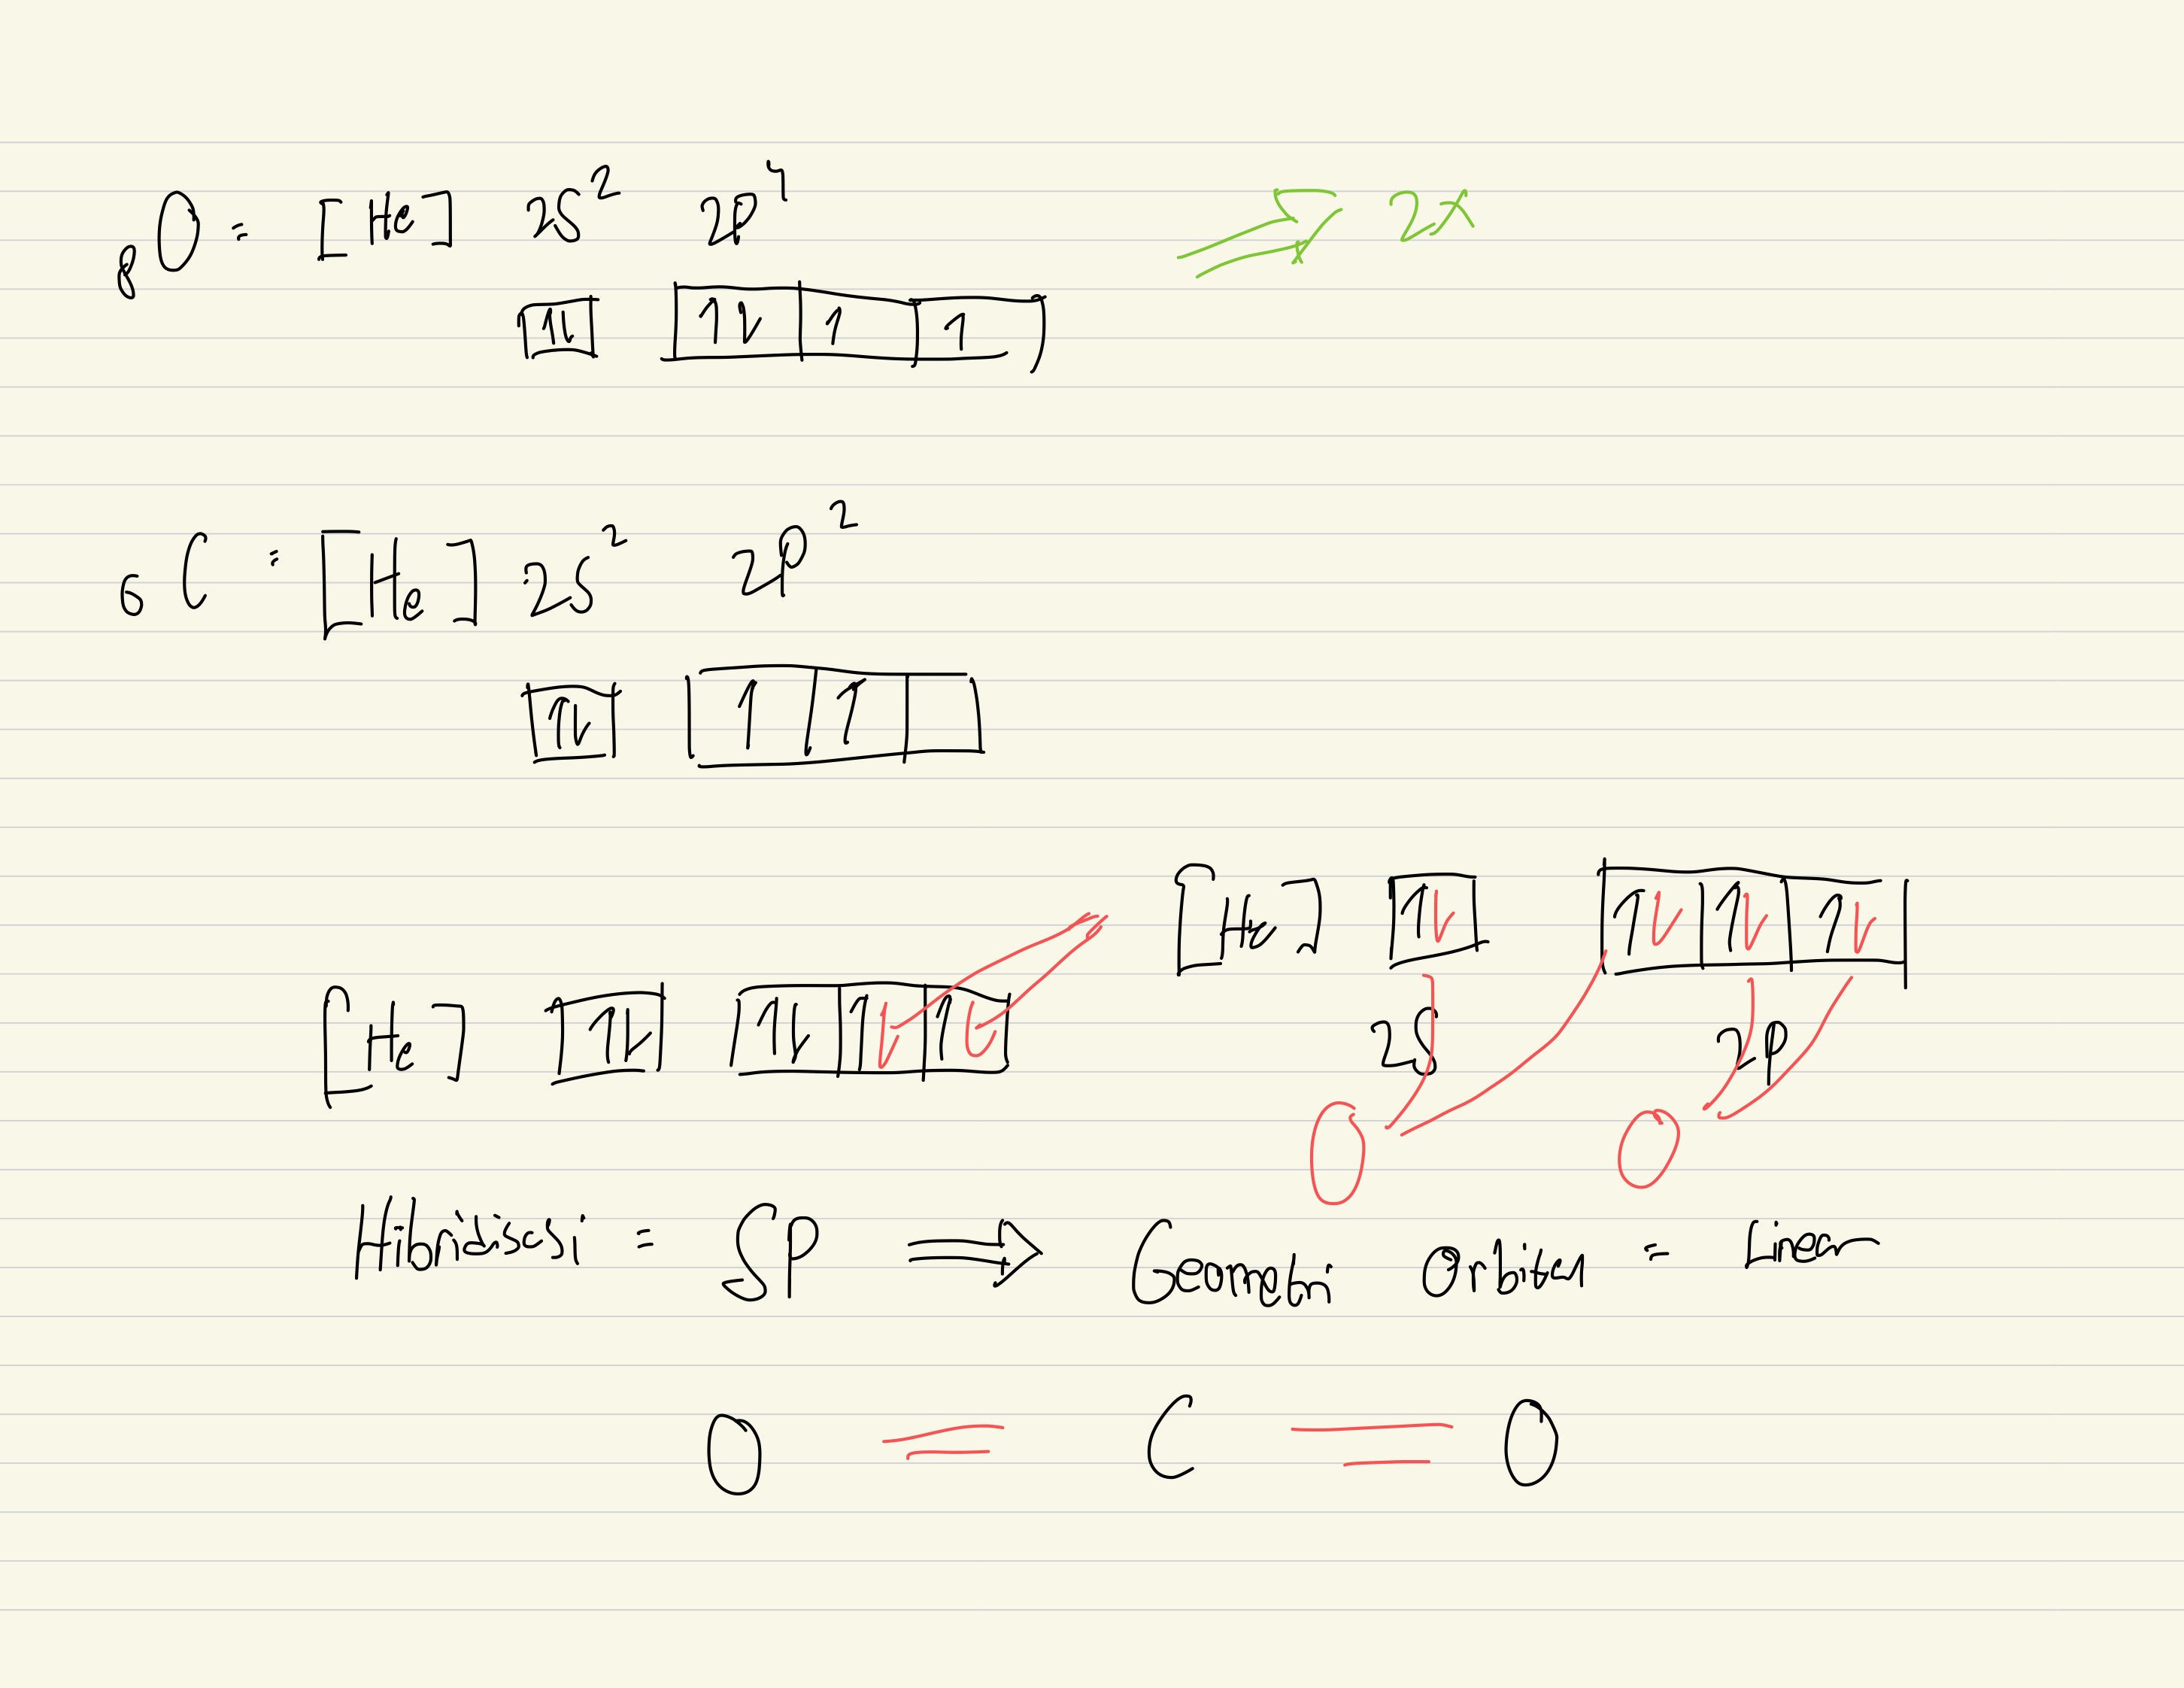 ₈O = [He] 2s² 2p⁴ ⇒ 2x
↑↓ ↑↓ ↑ ↑
₆C = [He] 2s² 2p²
↑↓ ↑ ↑
[He] ↑↓ ↑↓ ↑↓ ↑↓
[He] ↑↓ ↑↓ ↑↓ ↑↓
2s 2p
O O
Hibridisasi = SP ⇒ Geometri Orbital = Linear
O = C = O